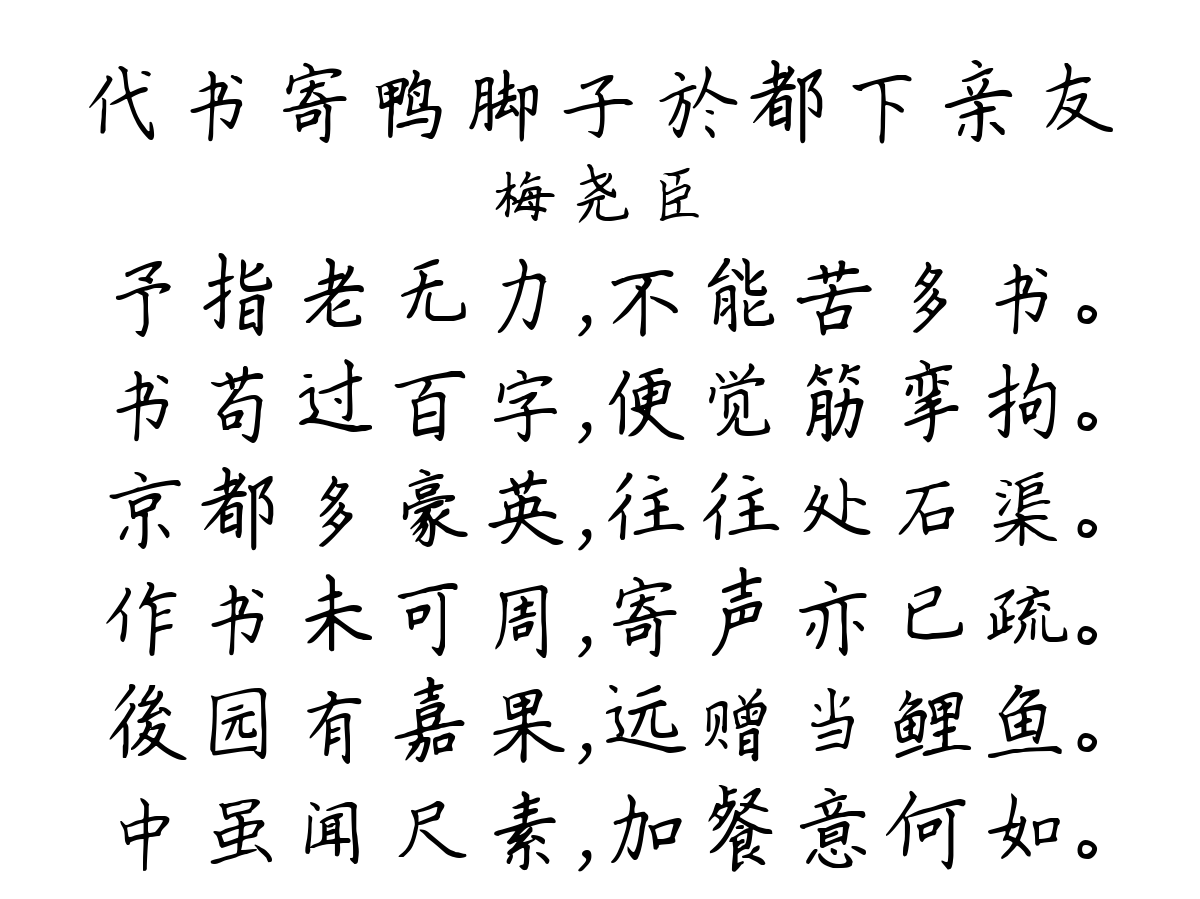 代书寄鸭脚子於都下亲友
梅尧臣
予指老无力,不能苦多书。
书苟过百字,便觉筋挛拘。
京都多豪英,往往处石渠。
作书未可周,寄声亦已疏。
後园有嘉果,远赠当鲤鱼。
中虽闻尺素,加餐意何如。